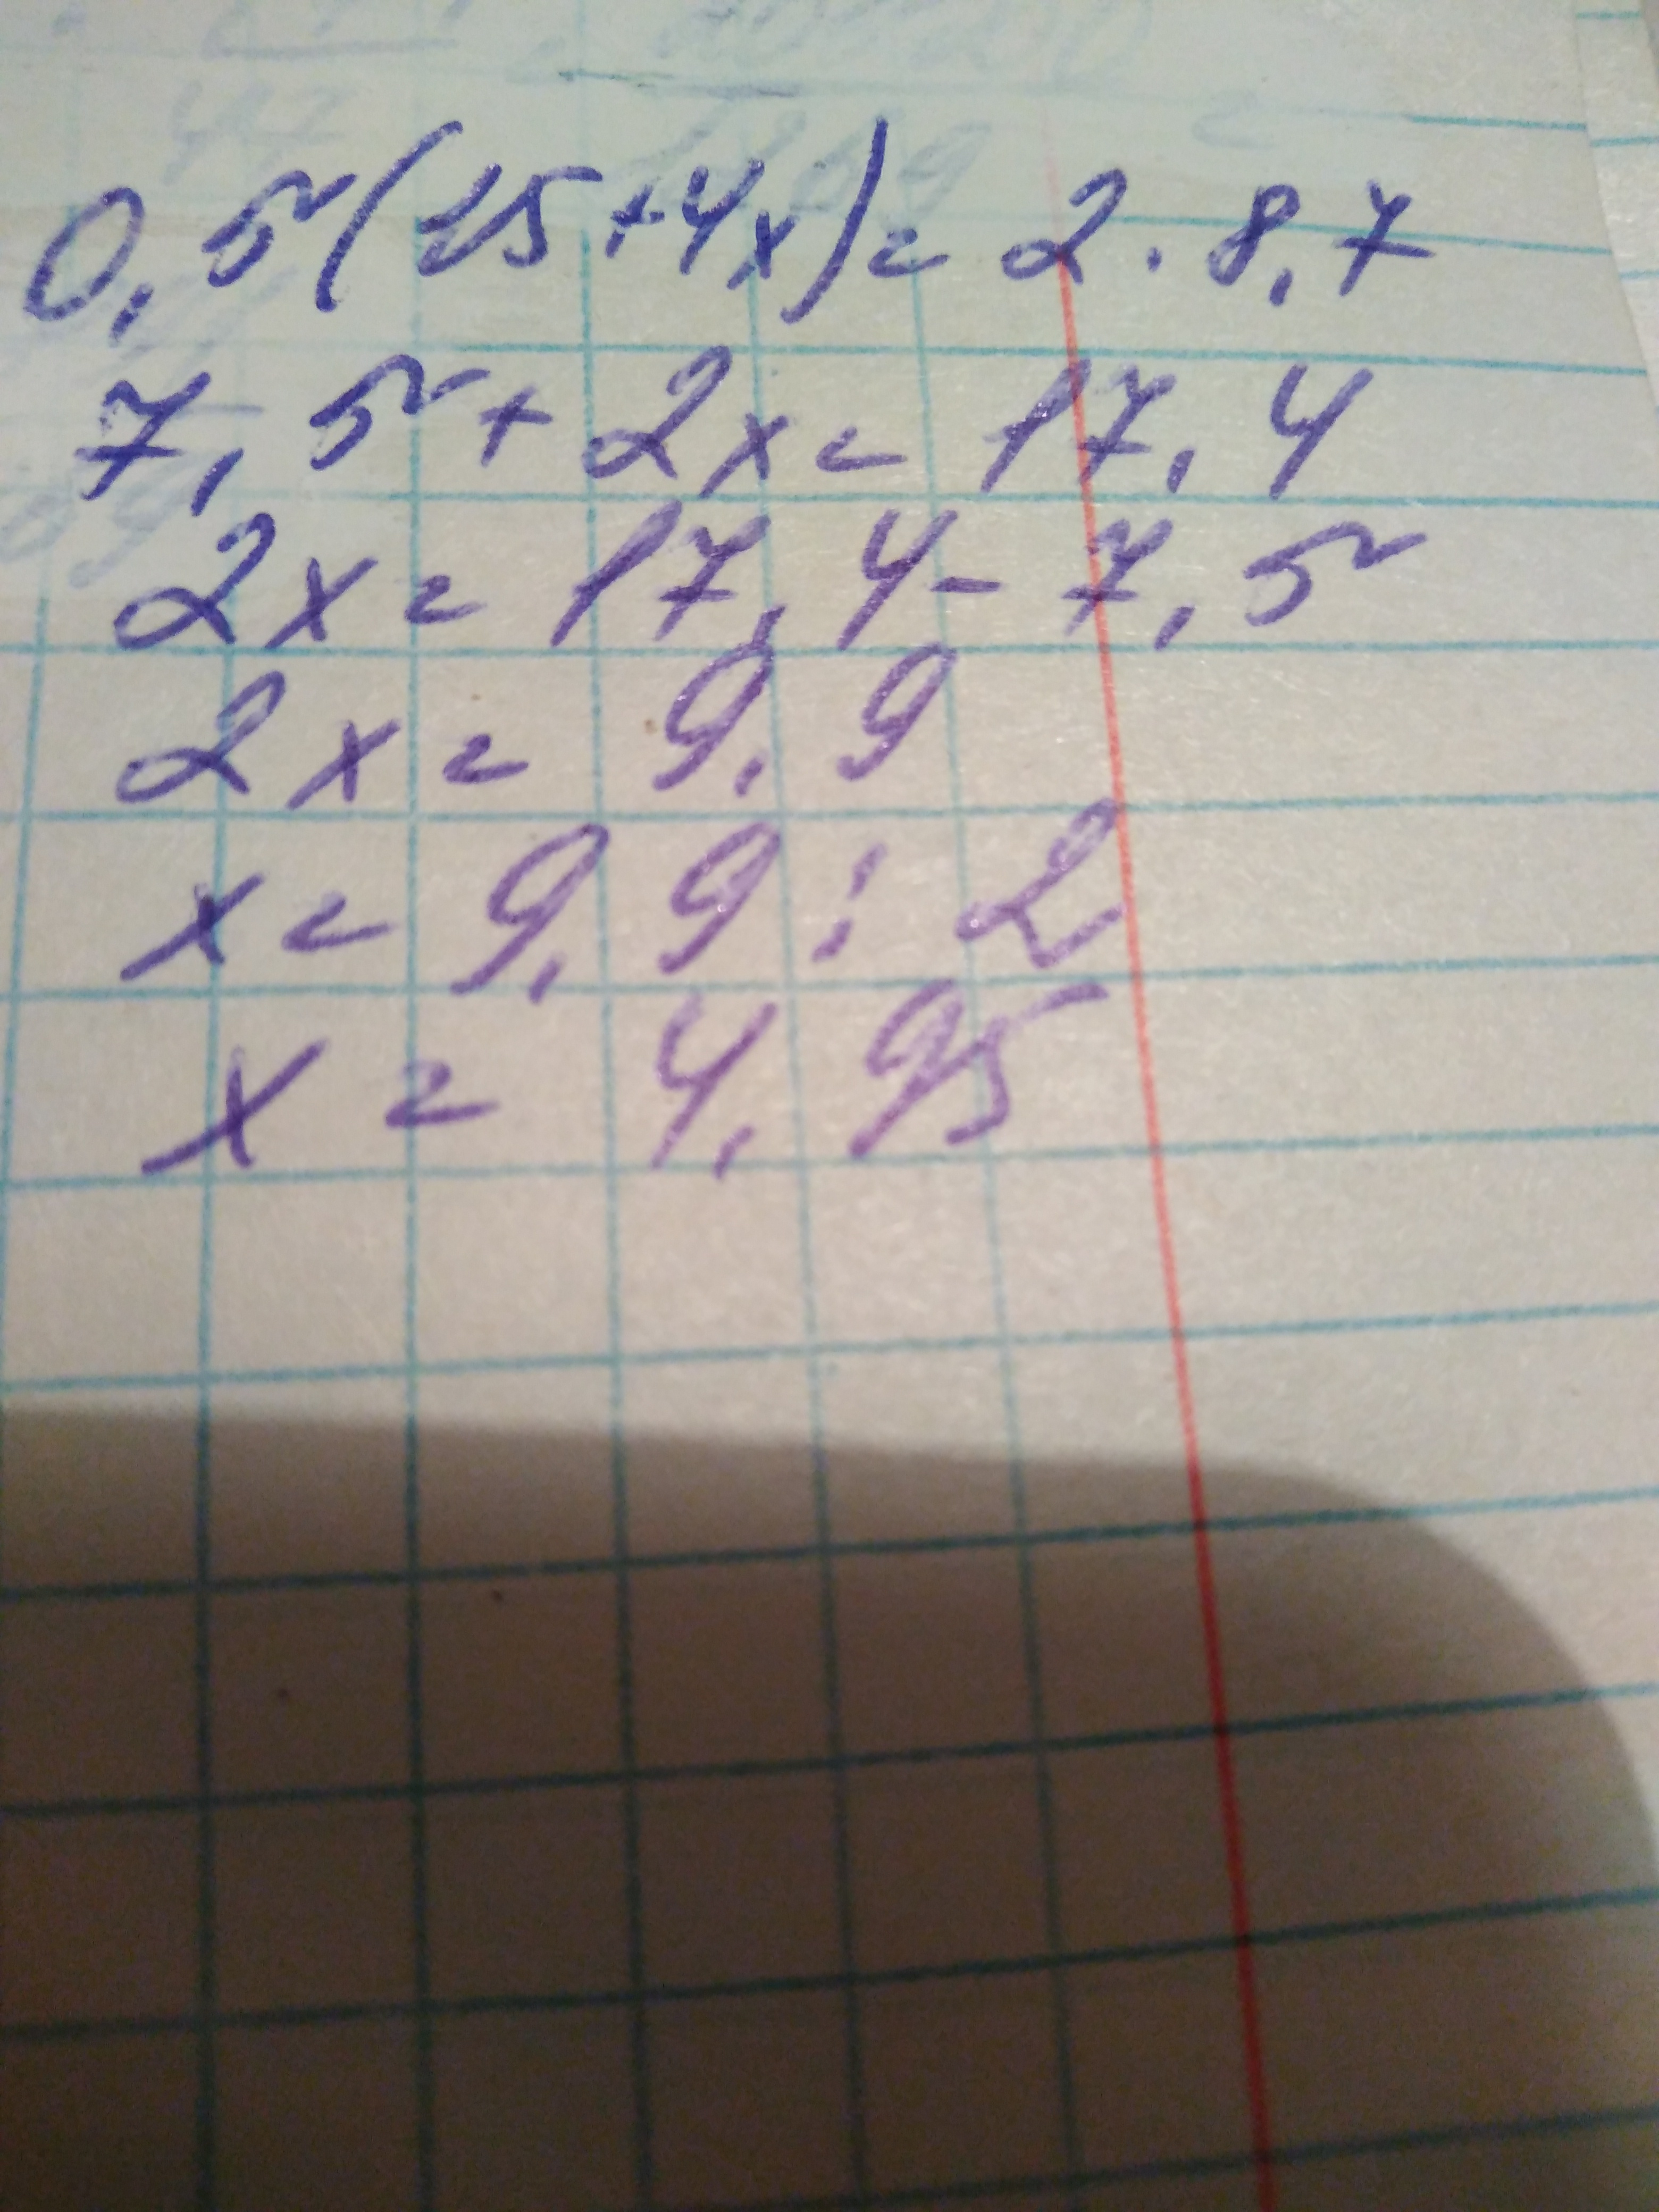 0,5(15+4x)=2·8,7
7,5+2x=17,4
2x=17,4-7,5
2x=9,9
x=9,9:2
x=4,95